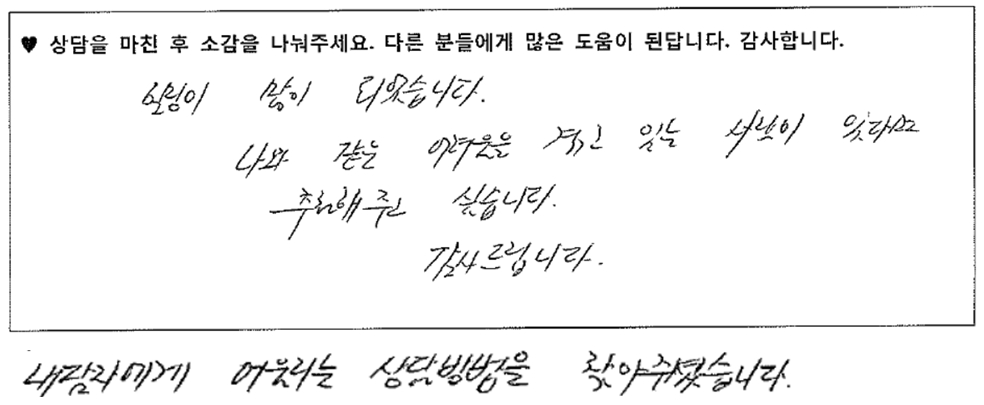 ♥ 상담을 마친 후 소감을 나눠주세요. 다른 분들에게 많은 도움이 된답니다. 감사합니다.
힐링이 많이 되었습니다.
나와 같은 어려움을 겪고 있는 사람이 있다면
추천해주고 싶습니다.
감사드립니다.
내담자에게 어울리는 상담방법을 찾아주셨습니다.